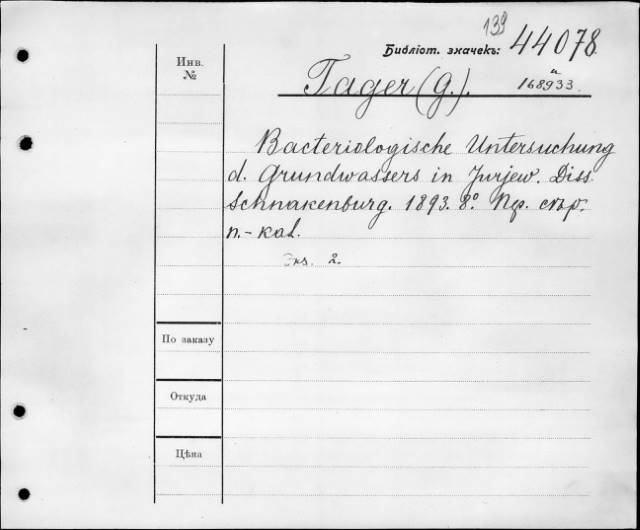 139
Библіот. значекъ: 44078
и
168933
Инв.
№
Tager (G.).
Bacteriologische Untersuchung
d. Grundwassers in Jurjew. Diss.
Schnakenburg. 1893. 8º.
п.-кал.
Экз. 2.
По заказу
Откуда
Цѣна